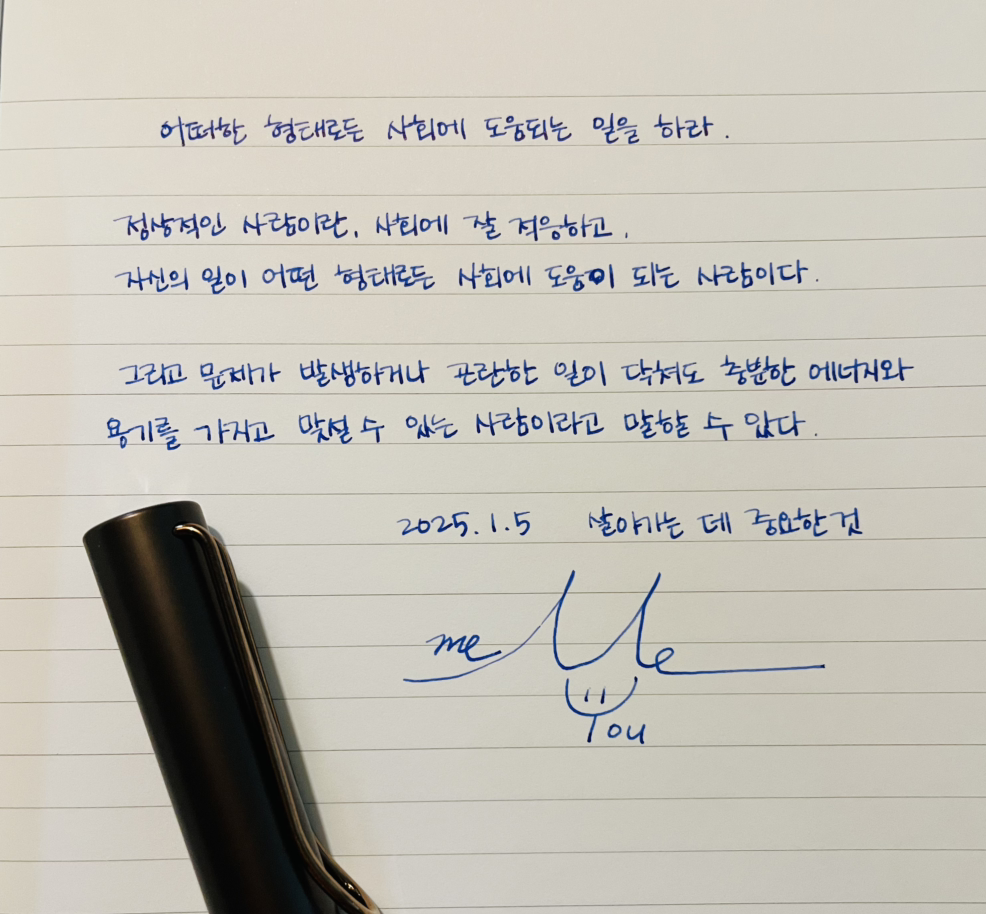 어떠한 형태로든 사회에 도움되는 일을 하라.
정상적인 사람이란, 사회에 잘 적응하고,
자신의 일이 어떤 형태로든 사회에 도움이 되는 사람이다.
그리고 문제가 발생하거나 곤란한 일이 닥쳐도 충분한 에너지와
용기를 가지고 맞설 수 있는 사람이라고 말할 수 있다.
2025.1.5 살아가는 데 중요한 것
me
You